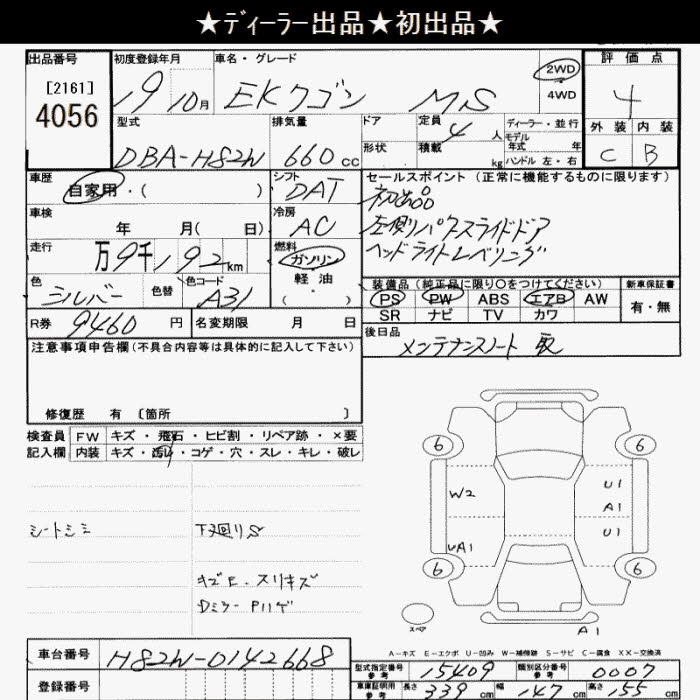 ★ディーラー出品★初出品★
出品番号 初度登録年月 車名・グレード 評価点
[2161]
4056
19 10月 EKワゴン MS 2WD 4WD 4
型式 排気量 ドア 定員 4 人 ディーラー・並行 外装 内装
モデル年式 年
DBA-H82W 660cc 形状 積載 kg ハンドル 左・右 C B
車歴 シフト セールスポイント (正常に機能するものに限ります)
自家用・( ) DAT 初出品
車検 冷房 左側リバクスライドドア
年 月( 日) AC ヘッドライトレベリング
走行 燃料
万9千192km ガソリン
軽油
( )
色 色替 色コード 装備品(純正品に限り〇をつけてください) 新車保証書
シルバー A31 PS PW ABS エアB AW 有・無
SR ナビ TV カワ
R券 9460 円 名変期限 月 日 後日品
メンテナンスノート 取
注意事項申告欄(不具合内容等は具体的に記入して下さい)
修復歴 有 〔箇所 〕
検査員 FW キズ・飛石・ヒビ割・リペア跡・×要
記入欄 内装 キズ・汚れ・コゲ・穴・スレ・キレ・破レ
6 6
W2 U1
A1
UA1 U1
6 6
シートシミ 下廻りS
キズE・スリキズ
Dミラー Pハゲ
スペア A1
A-キズ E-エクボ U-凹み W-補修跡 S-サビ C-腐食 XX-交換済
車台番号 H82W-0142668
型式指定番号 参考 15409 類別区分番号 参考 0007
登録番号
車庫証明用 参考 長さ 339 cm 幅 147 cm 高さ 155 cm